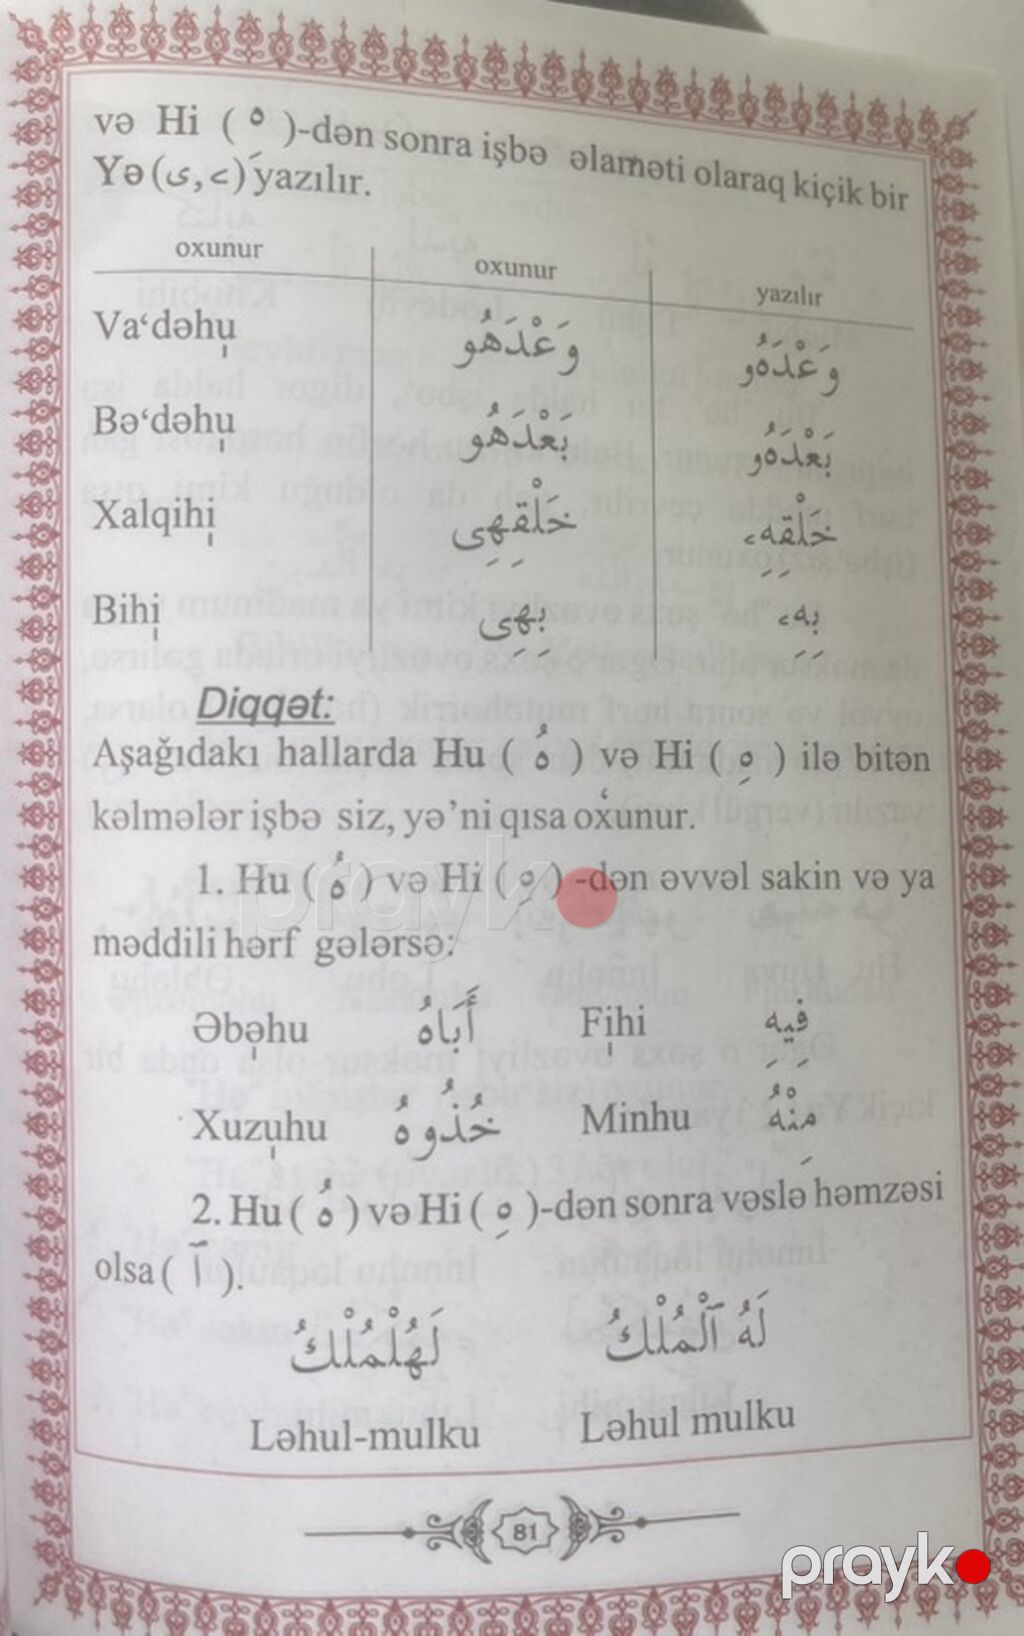 və Hi ( ه )-dən sonra işbə əlaməti olaraq kiçik bir
Yə (ے ,ى) yazılır.
oxunur oxunur yazılır
Va‘dəhụ وَعْدَهُو وَعْدَهُو
Bə‘dəhụ بَعْدَهُو بَعْدَهُو
Xalqihị خَلْقِهِى خَلْقِهِے
Bihị بِهِى بِهِے
Diqqət:
Aşağıdakı hallarda Hu ( هُ ) və Hi ( هِ ) ilə bitən
kəlmələr işbə siz, yə’ni qısa oxunur.
1. Hu ( هُ ) və Hi ( هِ ) -dən əvvəl sakin və ya
məddili hərf gələrsə:
Əbə̣hu أَبَاهُ Fịhi فِيهِ
Xuzụhu خُذُوهُ Minhu مِنْهُ
2. Hu ( هُ ) və Hi ( هِ )-dən sonra vəslə həmzəsi
olsa ( ٱ ).
لَهُلْمُلْكُ لَهُ ٱلْمُلْكُ
Ləhul-mulku Ləhul mulku
81
prayko
prayko